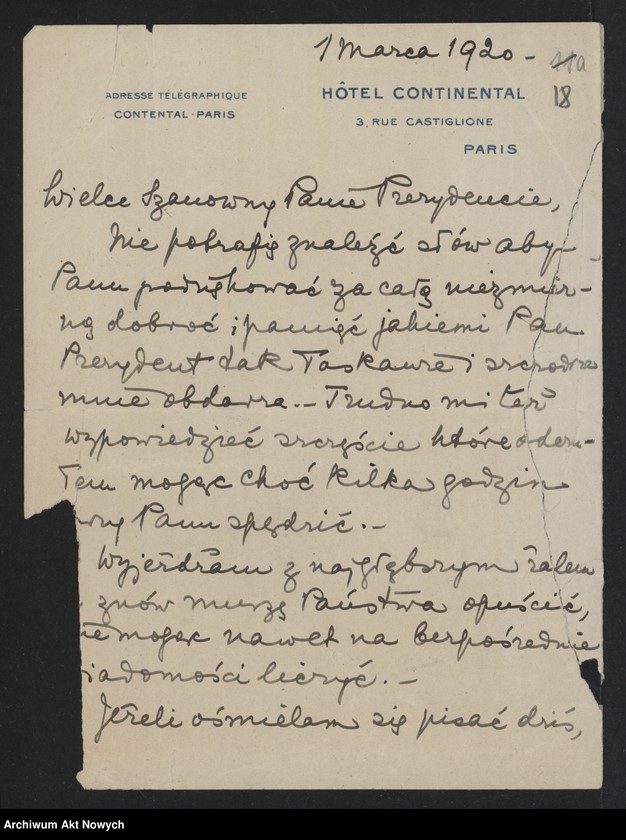 1 Marca 1920 -
11a
18
ADRESSE TÉLÉGRAPHIQUE
CONTENTAL-PARIS
HÔTEL CONTINENTAL
3, RUE CASTIGLIONE
PARIS
Wielce Szanowny Panie Prezydencie,
Nie potrafię znaleźć słów aby
Panu podziękować za całą niezmier-
ną dobroć i pamięć jakiemi Pan
Prezydent tak łaskawie i szczodrze
mnie obdarza. - Trudno mi też
wypowiedzieć szczęście które odczu-
łem mogąc choć kilka godzin
przy Panu spędzić. -
Wyjeżdżam z najgłębszym żalem
znów muszę Państwa opuścić,
nie mogąc nawet na bezpośrednie
wiadomości liczyć. -
Jeżeli ośmielam się pisać dziś,
Archiwum Akt Nowych